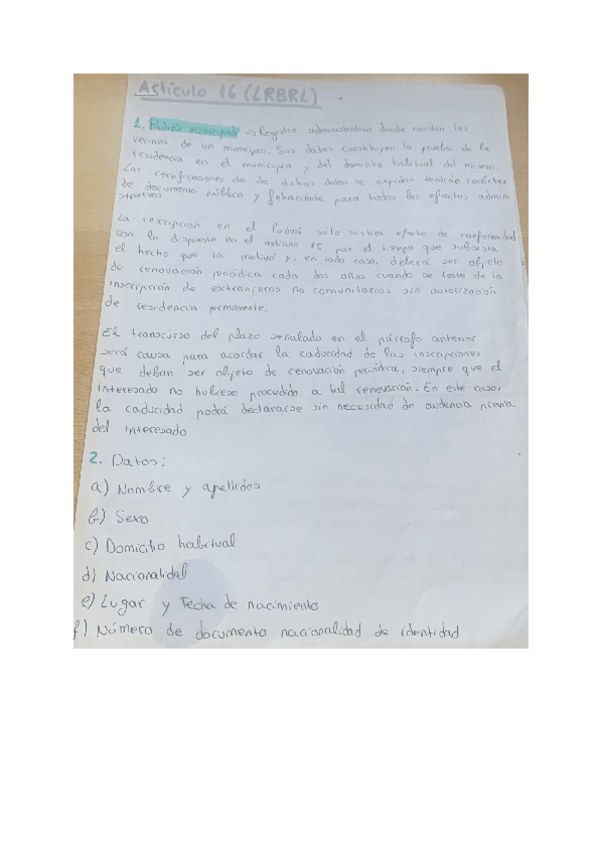 Artículo 16 (LRBRL)
1. Padrón municipal -> Registro administrativo donde constan los
vecinos de un municipio. Sus datos constituyen la prueba de la
residencia en el municipio y del domicilio habitual del mismo.
Las certificaciones de de dichos datos se expidan tendrán carácter
de documento público y fehaciente para todos los efectos admin
istrativos
La inscripción en el Padrón sólo surtirá efecto de conformidad
con lo dispuesto en el artículo 15 por el tiempo que subsista
el hecho que la motivó y, en todo caso, deberá ser objeto
de renovación periódica cada dos años cuando se trate de la
inscripción de extranjeros no comunitarios sin autorización
de residencia permanente.
El transcurso del plazo señalado en el párrafo anterior
será causa para acordar la caducidad de las inscripciones
que deban ser objeto de renovación periódica, siempre que el
interesado no hubiese procedido a tal renovación. En este caso,
la caducidad podrá declararse sin necesidad de audiencia previa
del interesado
2. Datos:
a) Nombre y apellidos
b) Sexo
c) Domicilio habitual
d) Nacionalidad
e) Lugar y Fecha de nacimiento
f) Número de documento nacionalidad de identidad